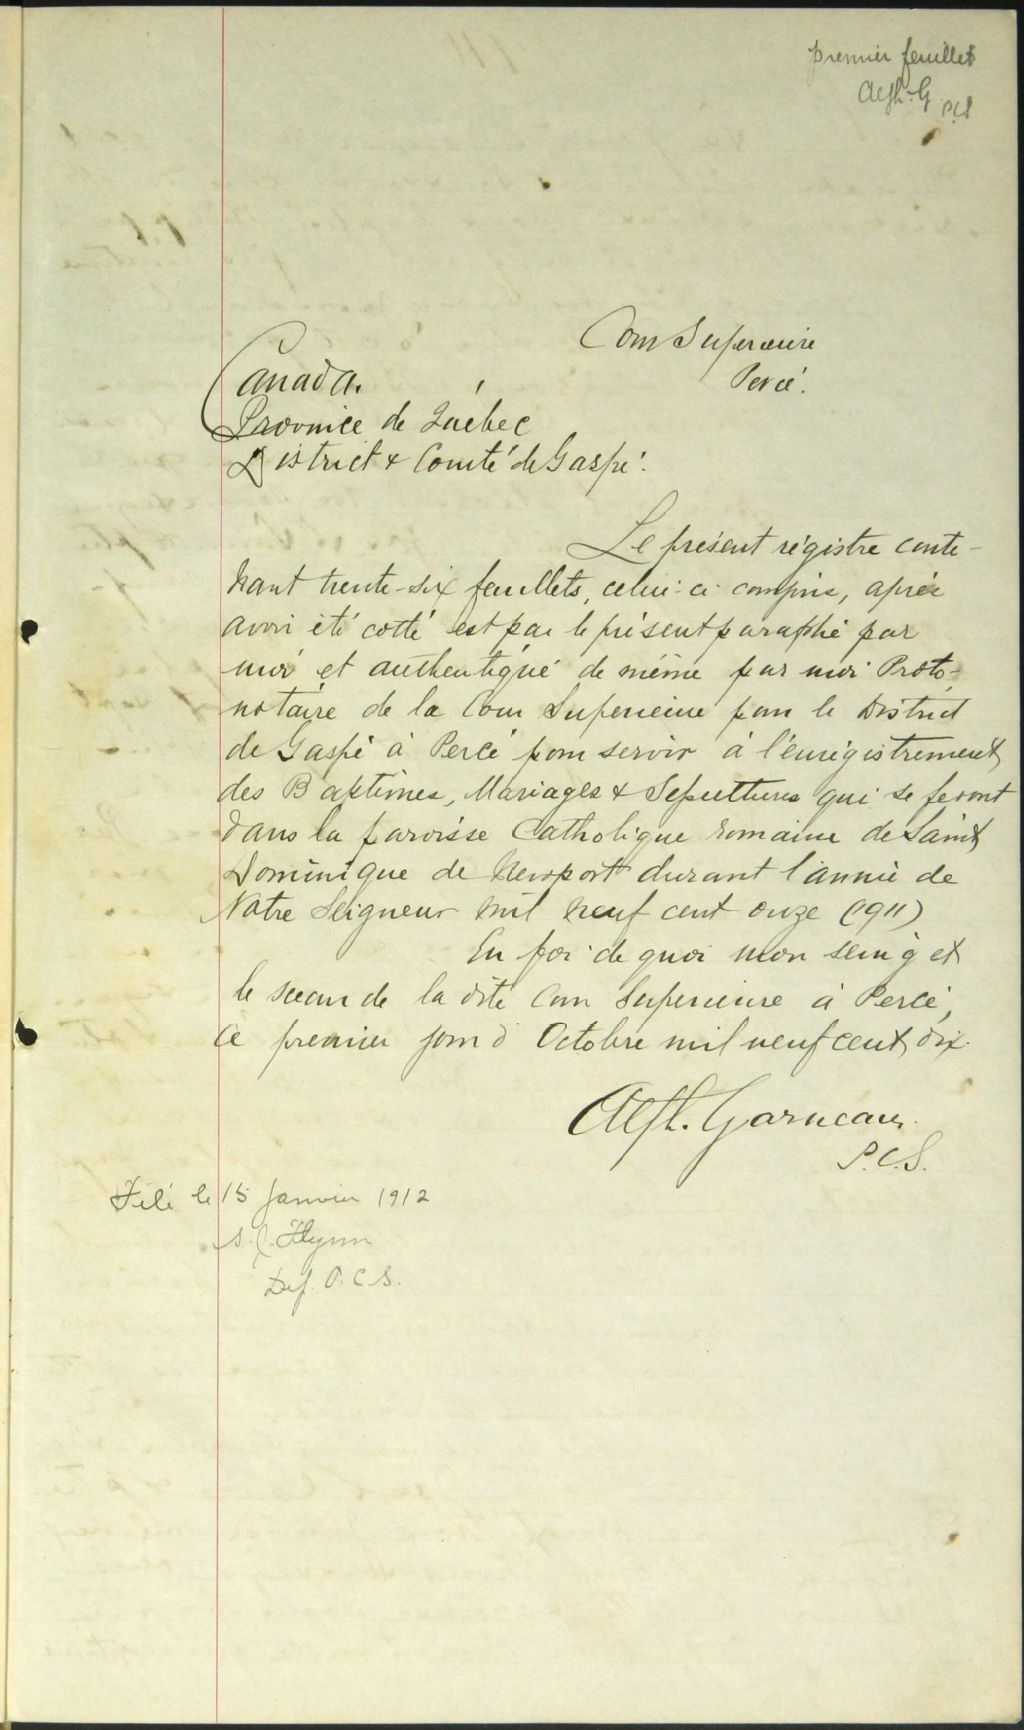 premier feuillet
Alph. G
P.C.S
Cour Superieure
Percé.
Canada.
Province de Québec
District & Comté de Gaspé.
Le présent régistre conte-
nant trente-six feuillets, celui-ci compris, après
avoir été cotté est par le présent paraphé par
moi et authentiqué de même par moi Proto-
notaire de la Cour Superieure pour le District
de Gaspé à Percé pour servir à l'enrégistrement
des Baptêmes, Mariages & Sepultures qui se feront
dans la paroisse Catholique romaine de Saint
Dominique de Newport durant l'année de
Notre Seigneur mil neuf cent onze (1911)
En foi de quoi mon seing et
le sceau de la dite Cour Superieure à Percé,
ce premier jour d'Octobre mil neuf cent dix.
Alph. Garneau
P.C.S.
Filé le 15 Janvier 1912
Flynn
Dep. P.C.S.